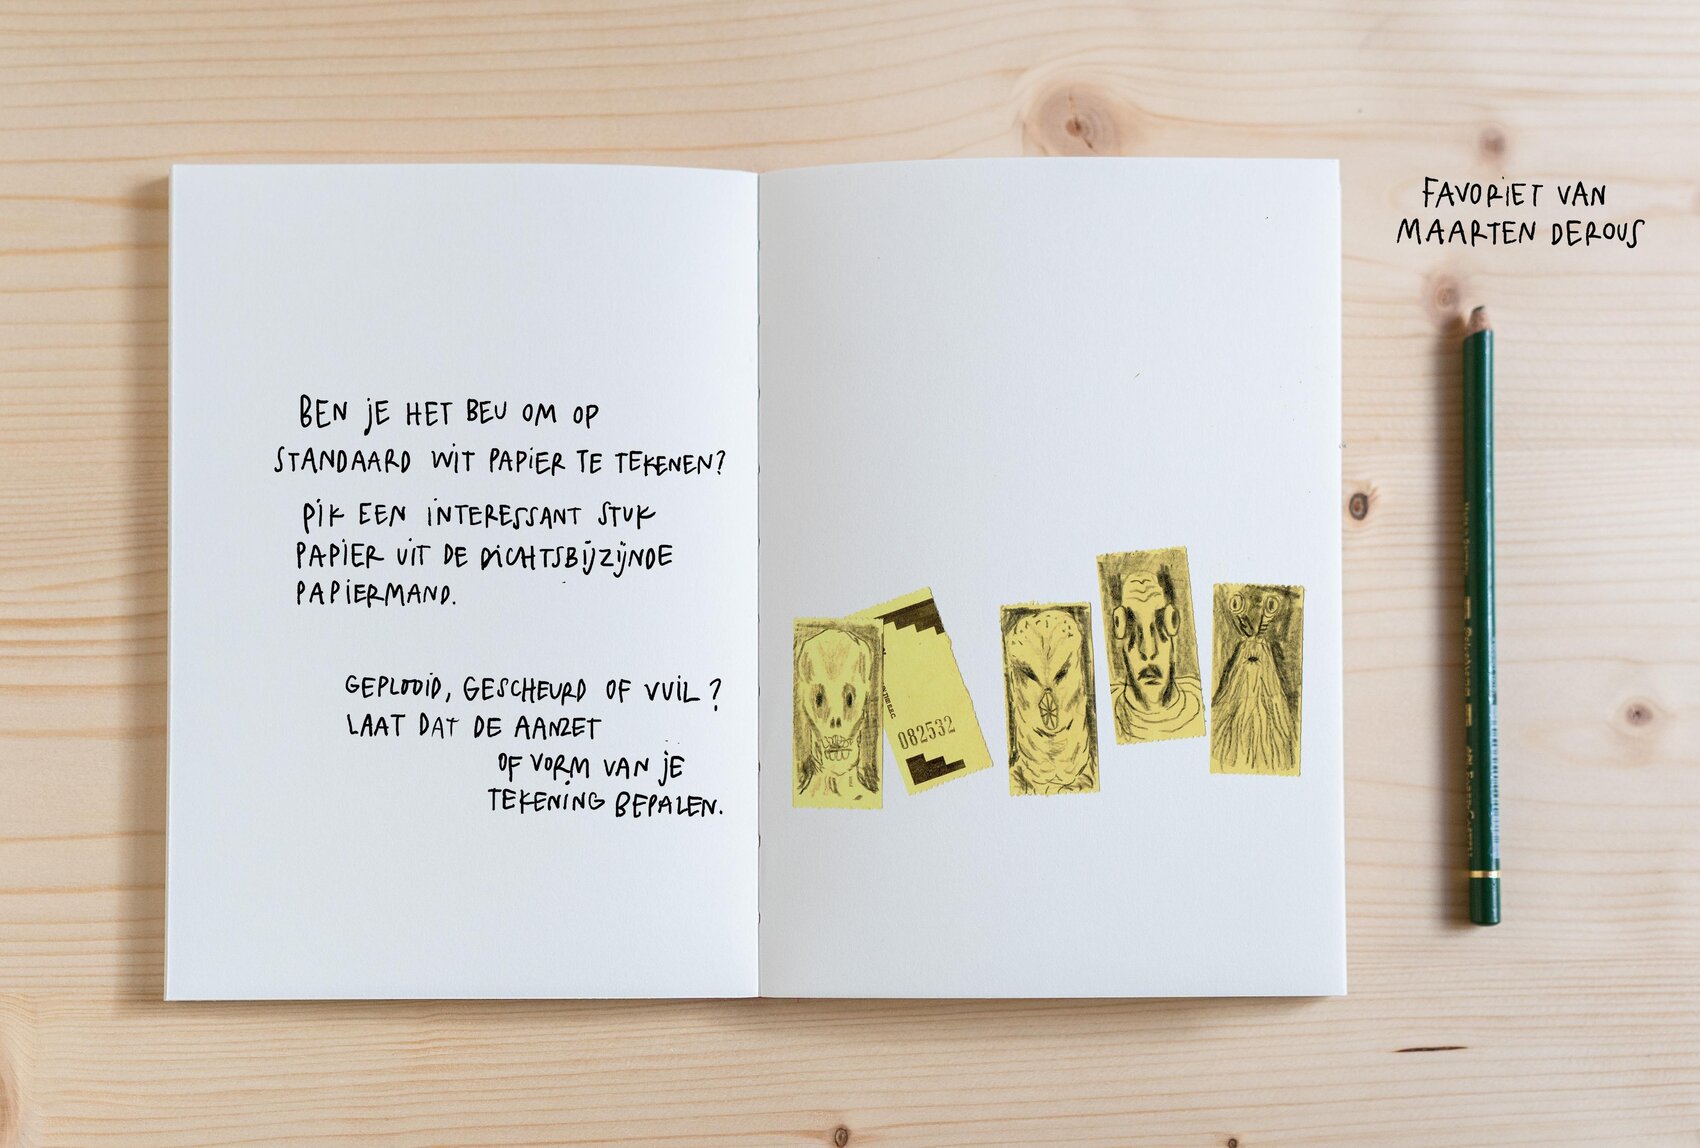 BEN JE HET BEU OM OP
STANDAARD WIT PAPIER TE TEKENEN?
PIK EEN INTERESSANT STUK
PAPIER UIT DE DICHTSBIJZIJNDE
PAPIERMAND.
GEPLOOID, GESCHEURD OF VUIL?
LAAT DAT DE AANZET
OF VORM VAN JE
TEKENING BEPALEN.
082532
FAVORIET VAN
MAARTEN DEROUS